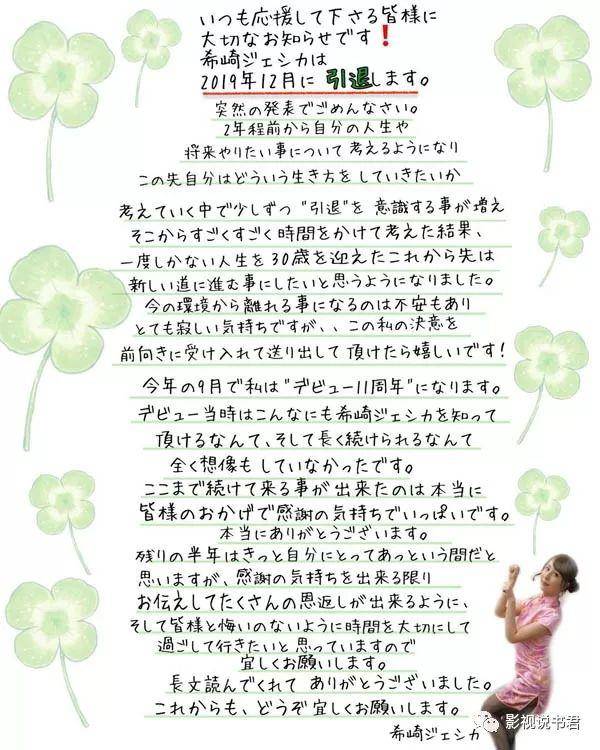 いつも応援して下さる皆様に
大切なお知らせです❗
希崎ジェシカは
2019年12月に 引退します。
突然の発表でごめんなさい。
2年程前から自分の人生や
将来やりたい事について 考えるようになり
この先自分はどういう生き方を していきたいか
考えていく中で少しずつ "引退"を 意識する事が増え
そこからすごくすごく時間をかけて考えた結果、
一度しかない人生を30歳を迎えたこれから先は
新しい道に進む事にしたいと思うようになりました。
今の環境から離れる事になるのは不安もあり
とても寂しい気持ちですが、、この私の決意を
前向きに受け入れて送り出して 頂けたら嬉しいです!
今年の9月で私は"デビュー11周年"になります。
デビュー当時はこんなにも希崎ジェシカを知って
頂けるなんて、そして長く続けられるなんて
全く想像も していなかったです。
ここまで続けて来る事が出来たのは 本当に
皆様のおかげで感謝の気持ちでいっぱいです。
本当にありがとうございます。
残りの半年はきっと自分にとってあっという間だと
思いますが、感謝の気持ちを出来る限り
お伝えしてたくさんの恩返しが出来るように、
そして皆様と悔いのないように時間を大切にして
過ごして行きたいと 思っていますので
宜しくお願いします。
長文読んでくれて ありがとうございました。
これからも、どうぞ 宜しくお願いします。
希崎ジェシカ
影视说书君